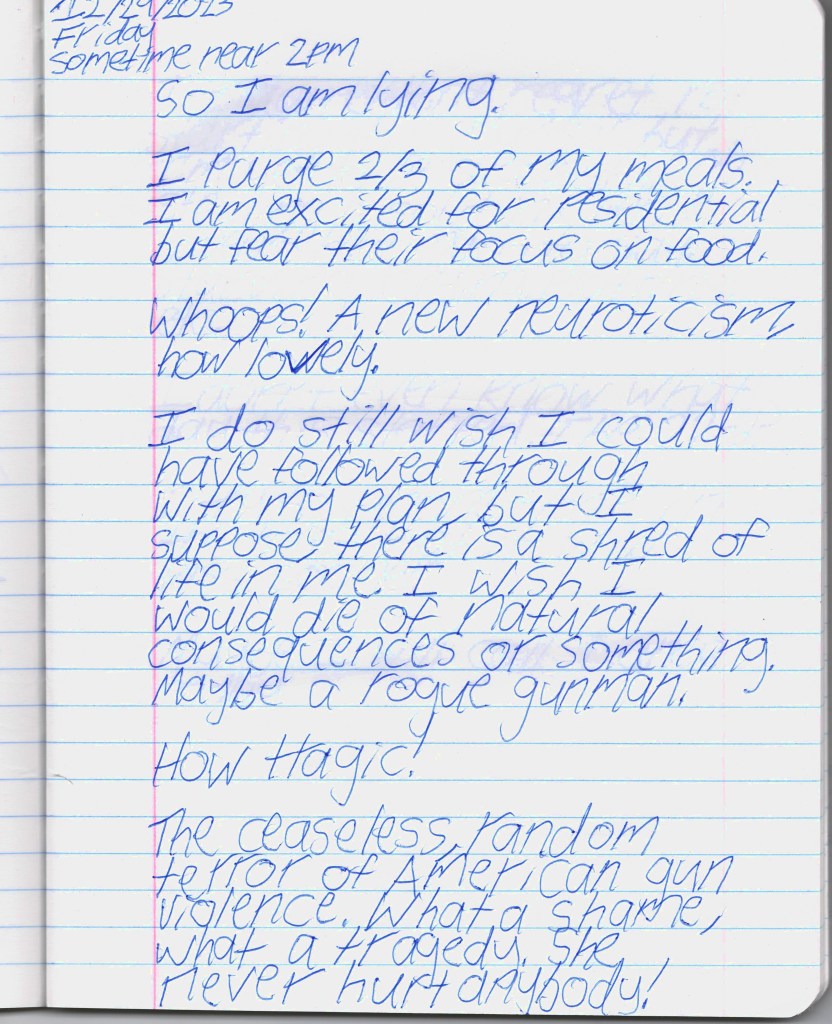 12/29/2023
Friday
sometime near 2pm
So I am lying.
I purge 2/3 of my meals.
I am excited for residential
but fear their focus on food.
Whoops! A new neuroticism,
how lovely.
I do still wish I could
have followed through
with my plan, but I
suppose, there is a shred of
life in me. I wish I
would die of natural
consequences or something.
Maybe a rogue gunman.
How tragic!
The ceaseless, random
terror of American gun
violence. What a shame,
what a tragedy. She
never hurt anybody!